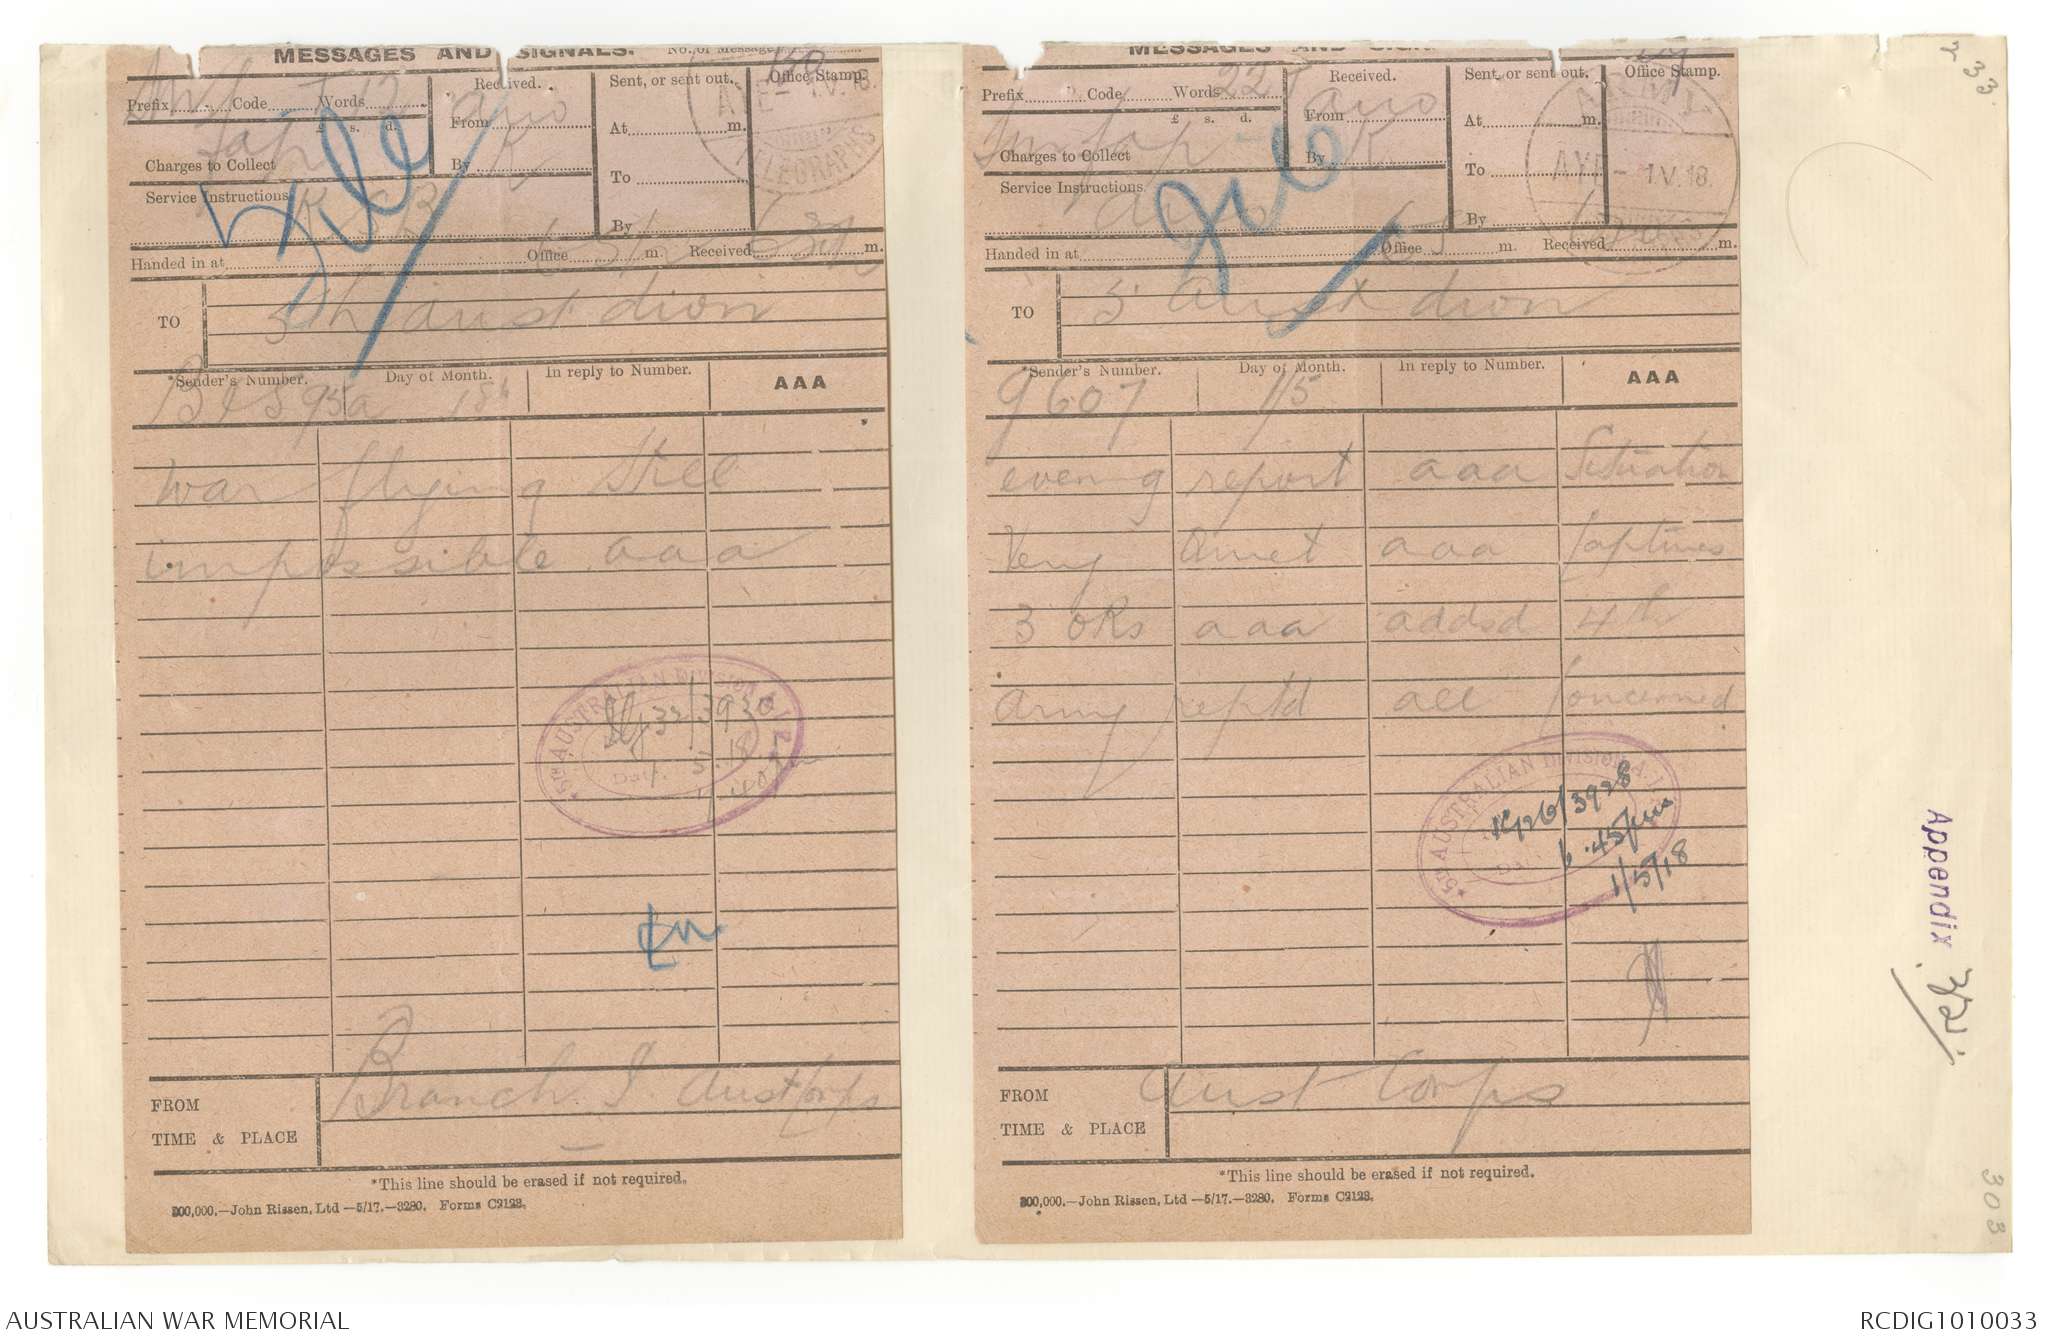 MESSAGES AND SIGNALS.
No. of Message
Prefix Code Words
Received. From By
Sent, or sent out. At m. To By
Office Stamp.
1.V.18.
TELEGRAPHS
£ s. d.
Charges to Collect
Service Instructions
File
Handed in at Office m. Received m.
TO 5th Aust dion
*Sender's Number. Day of Month. In reply to Number. AAA
BIS 95a 1st
War flying still
impossible aaa
5th AUSTRALIAN DIVISION A.I.F.
FROM Branch I. Aust Corps
TIME & PLACE
*This line should be erased if not required.
300,000.—John Rissen, Ltd —5/17.—3280. Forms C2123.
MESSAGES AND SIG
Prefix Code Words 22
Received. From By
Sent, or sent out. At m. To By
Office Stamp.
ARMY
1.V.18
£ s. d.
Charges to Collect
Service Instructions
File
Handed in at Office m. Received m.
TO 5 Aust dion
*Sender's Number. Day of Month. In reply to Number. AAA
G607 1/5
evening report aaa Situation
Very Quiet aaa Captures
3 ORs aaa added 4th
Army reptd all concerned
5th AUSTRALIAN DIVISION A.I.F.
6.45pm
1/5/18
FROM Aust Corps
TIME & PLACE
*This line should be erased if not required.
300,000.—John Rissen, Ltd —5/17.—3280. Forms C2123.
233
Appendix 32.
303
AUSTRALIAN WAR MEMORIAL
RCDIG1010033